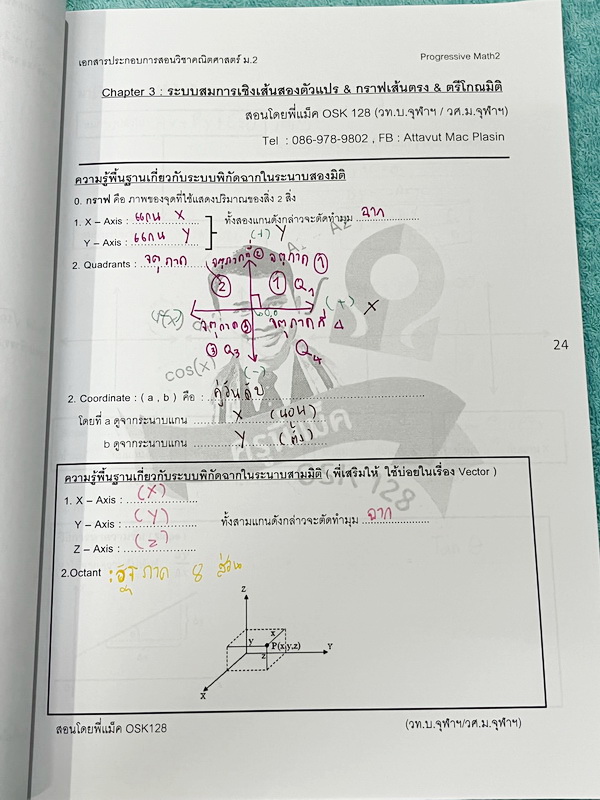 เอกสารประกอบการสอนวิชาคณิตศาสตร์ ม.2 Progressive Math2
Chapter 3 : ระบบสมการเชิงเส้นสองตัวแปร & กราฟเส้นตรง & ตรีโกณมิติ
สอนโดยพี่แม็ค OSK 128 (วท.บ.จุฬาฯ / วศ.ม.จุฬาฯ)
Tel : 086-978-9802 , FB : Attavut Mac Plasin
ความรู้พื้นฐานเกี่ยวกับระบบพิกัดฉากในระนาบสองมิติ
0. กราฟ คือ ภาพของจุดที่ใช้แสดงปริมาณของสิ่ง 2 สิ่ง
1. X – Axis : แกน X ทั้งสองแกนดังกล่าวจะตัดทำมุม ฉาก
Y – Axis : แกน Y
(+) Y
A1 A2
2. Quadrants : จตุภาค
จตุภาคที่ ② จตุภาค ①
② ① Q1
(+) X
จตุภาค ③ จตุภาคที่ 4
③ Q3 Q4
(-)
cos(x)
2. Coordinate : ( a , b ) คือ : คู่อันดับ
โดยที่ a ดูจากระนาบแกน X (นอน)
b ดูจากระนาบแกน Y (ตั้ง)
ตรีพี่แม็ค
OSK 128
24
ความรู้พื้นฐานเกี่ยวกับระบบพิกัดฉากในระนาบสามมิติ ( พี่เสริมให้ ใช้บ่อยในเรื่อง Vector )
1. X – Axis : (X)
Y – Axis : (Y) ทั้งสามแกนดังกล่าวจะตัดทำมุม ฉาก
Z – Axis : (Z)
2.Octant : อัฐภาค 8 ส่วน
Z
y x P(x,y,z) Y
z
X
สอนโดยพี่แม็ค OSK128 (วท.บ.จุฬาฯ/วศ.ม.จุฬาฯ)